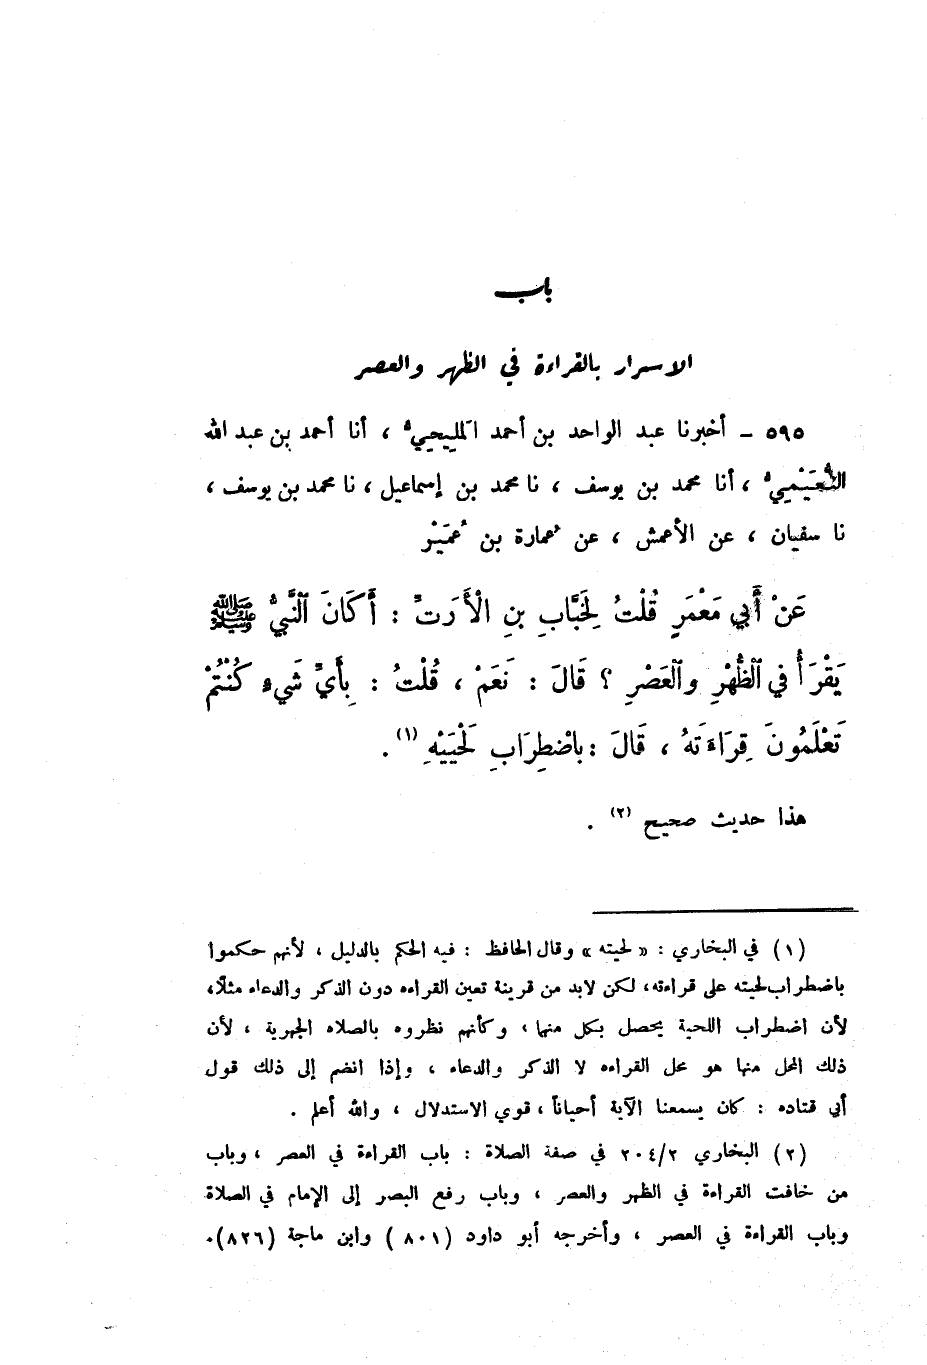 باب
الاسرار بالقراءة في الظهر والعصر
٥٩٥ – أخبرنا عبد الواحد بن أحمد المَلِيحِيُّ ، أنا أحمد بن عبد الله
النُّعَيْمِيُّ ، أنا محمد بن يوسف ، نا محمد بن إسماعيل ، نا محمد بن يوسف ،
نا سفيان ، عن الأعمش ، عن عُمارة بن عُمَيْر
عَنْ أَبِي مَعْمَرٍ قُلْتُ لِخَبَّابِ بنِ الْأَرَتِّ : أَكَانَ النَّبِيُّ ﷺ
يَقْرَأُ فِي الظُّهْرِ والعَصْرِ ؟ قَالَ : نَعَمْ ، قُلْتُ : بِأَيِّ شَيءٍ كُنْتُمْ
تَعْلَمُونَ قِرَاءَتَهُ ، قَالَ : بِاضْطِرَابِ لَحْيَيْهِ (١) .
هذا حديث صحيح (٢) .
(١) في البخاري : « لحيته » وقال الحافظ : فيه الحكم بالدليل ، لأنهم حكموا
باضطراب لحيته على قراءته ، لكن لابد من قرينة تعين القراءه دون الذكر والدعاء مثلًا،
لأن اضطراب اللحية يحصل بكل منها ، وكأنهم نظروه بالصلاه الجهرية ، لأن
ذلك المحل منها هو محل القراءه لا الذكر والدعاء ، وإذا انضم إلى ذلك قول
أبي قتاده : كان يسمعنا الآية أحياناً ، قوي الاستدلال ، والله أعلم .
(٢) البخاري ٢٠٤/٢ في صفة الصلاة : باب القراءة في العصر ، وباب
من خافت القراءة في الظهر والعصر ، وباب رفع البصر إلى الإمام في الصلاة
وباب القراءة في العصر ، وأخرجه أبو داود (٨٠١) وابن ماجة (٨٢٦).